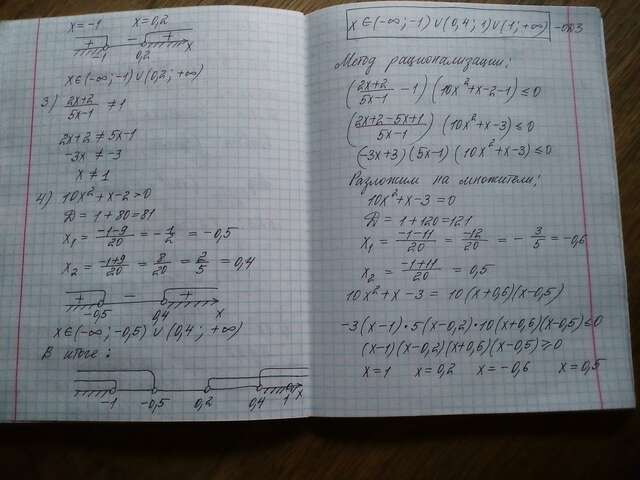 x=-1 x=0,2
+ - + x
-1 0,2
x∈(-∞;-1)∪(0,2; +∞)
3) (2x+2)/(5x-1) ≠1
2x+2≠5x-1
-3x ≠ -3
x ≠ 1
4) 10x²+x-2>0
D = 1+80=81
x₁ = (-1-9)/20 = -1/2 = -0,5
x₂ = (-1+9)/20 = 8/20 = 2/5 = 0,4
+ - +
-0,5 0,4 x
x∈(-∞;-0,5)∪(0,4; +∞)
В итоге:
-1 -0,5 0,2 0,4 1 x
x∈(-∞;-1)∪(0,4;1)∪(1;+∞) -ОДЗ
Метод рационализации:
((2x+2)/(5x-1) -1)(10x²+x-2-1)≤0
((2x+2-5x+1)/(5x-1))(10x²+x-3)≤0
(-3x+3)(5x-1)(10x²+x-3)≤0
Разложим на множители:
10x²+x-3=0
D = 1+120=121
x₁ = (-1-11)/20 = -12/20 = -3/5 = -0,6
x₂ = (-1+11)/20 = 0,5
10x²+x-3 = 10(x+0,6)(x-0,5)
-3(x-1)·5(x-0,2)·10(x+0,6)(x-0,5)≤0
(x-1)(x-0,2)(x+0,6)(x-0,5)≥0
x=1 x=0,2 x=-0,6 x=0,5